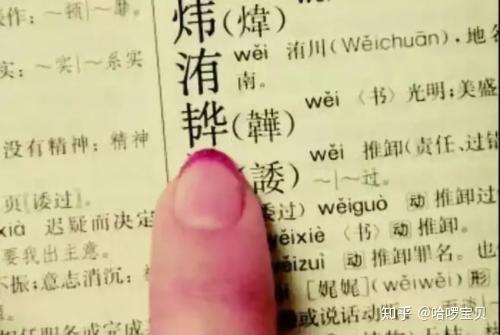 炜(煒)
洧 wěi 洧川(Wěichuān),地名
南。
(韡) wěi〈书〉光明;美盛
(諉) wěi 推卸(责任、过错
～|～过。
wěiguò 动 推卸过
wěixiè〈书〉动 推卸。
wěizuì 动 推卸罪名。也
[娓娓](wěiwěi) 形
或说话动
～实|～系实
没有精神;精神
页〖诿过〗
xià 迟疑而决定
要我出主意。
不振;意志消沉
任职务或完成
知乎 @哈啰宝贝